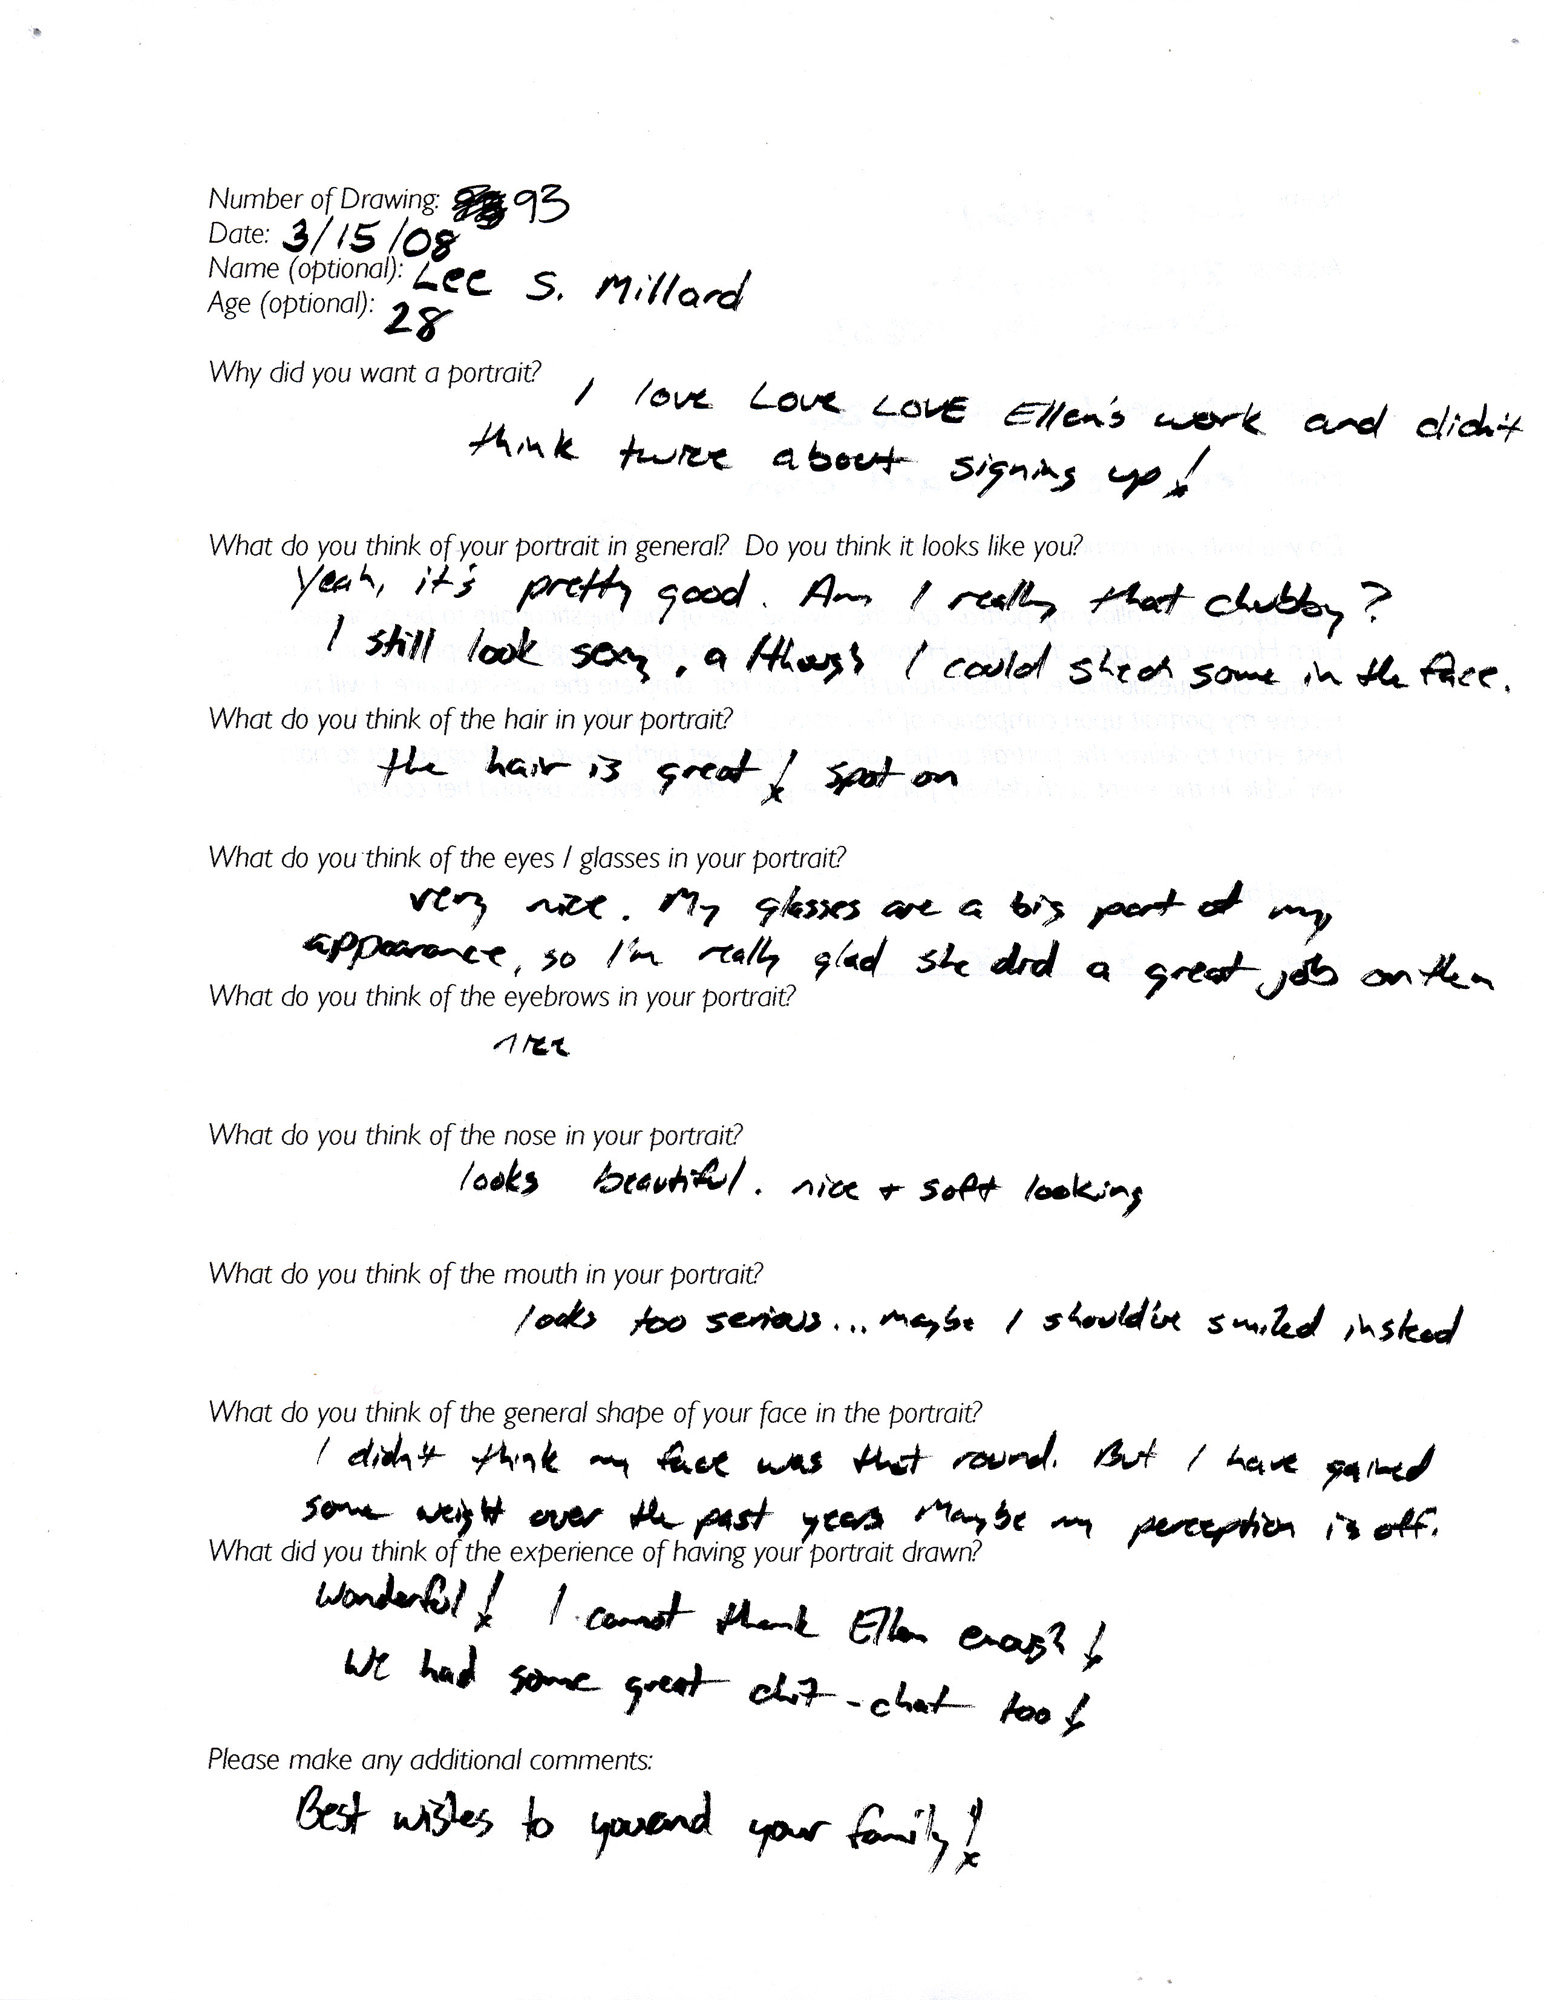 Number of Drawing: 93
Date: 3/15/08
Name (optional): Lee S. Millard
Age (optional): 28
Why did you want a portrait? I love LOVE LOVE Ellen's work and didn't
think twice about signing up!
What do you think of your portrait in general? Do you think it looks like you?
Yeah, it's pretty good. Am I really that chubby?
I still look sexy, although I could shed some in the face.
What do you think of the hair in your portrait?
the hair is great! spot on
What do you think of the eyes / glasses in your portrait?
very nice. My glasses are a big part of my
appearance, so I'm really glad she did a great job on them
What do you think of the eyebrows in your portrait?
nice
What do you think of the nose in your portrait?
looks beautiful. nice + soft looking
What do you think of the mouth in your portrait?
looks too serious... maybe I should've smiled instead
What do you think of the general shape of your face in the portrait?
I didn't think my face was that round. But I have gained
some weight over the past years Maybe my perception is off.
What did you think of the experience of having your portrait drawn?
Wonderful! I cannot thank Ellen enough!
We had some great chit-chat too!
Please make any additional comments:
Best wishes to you and your family!